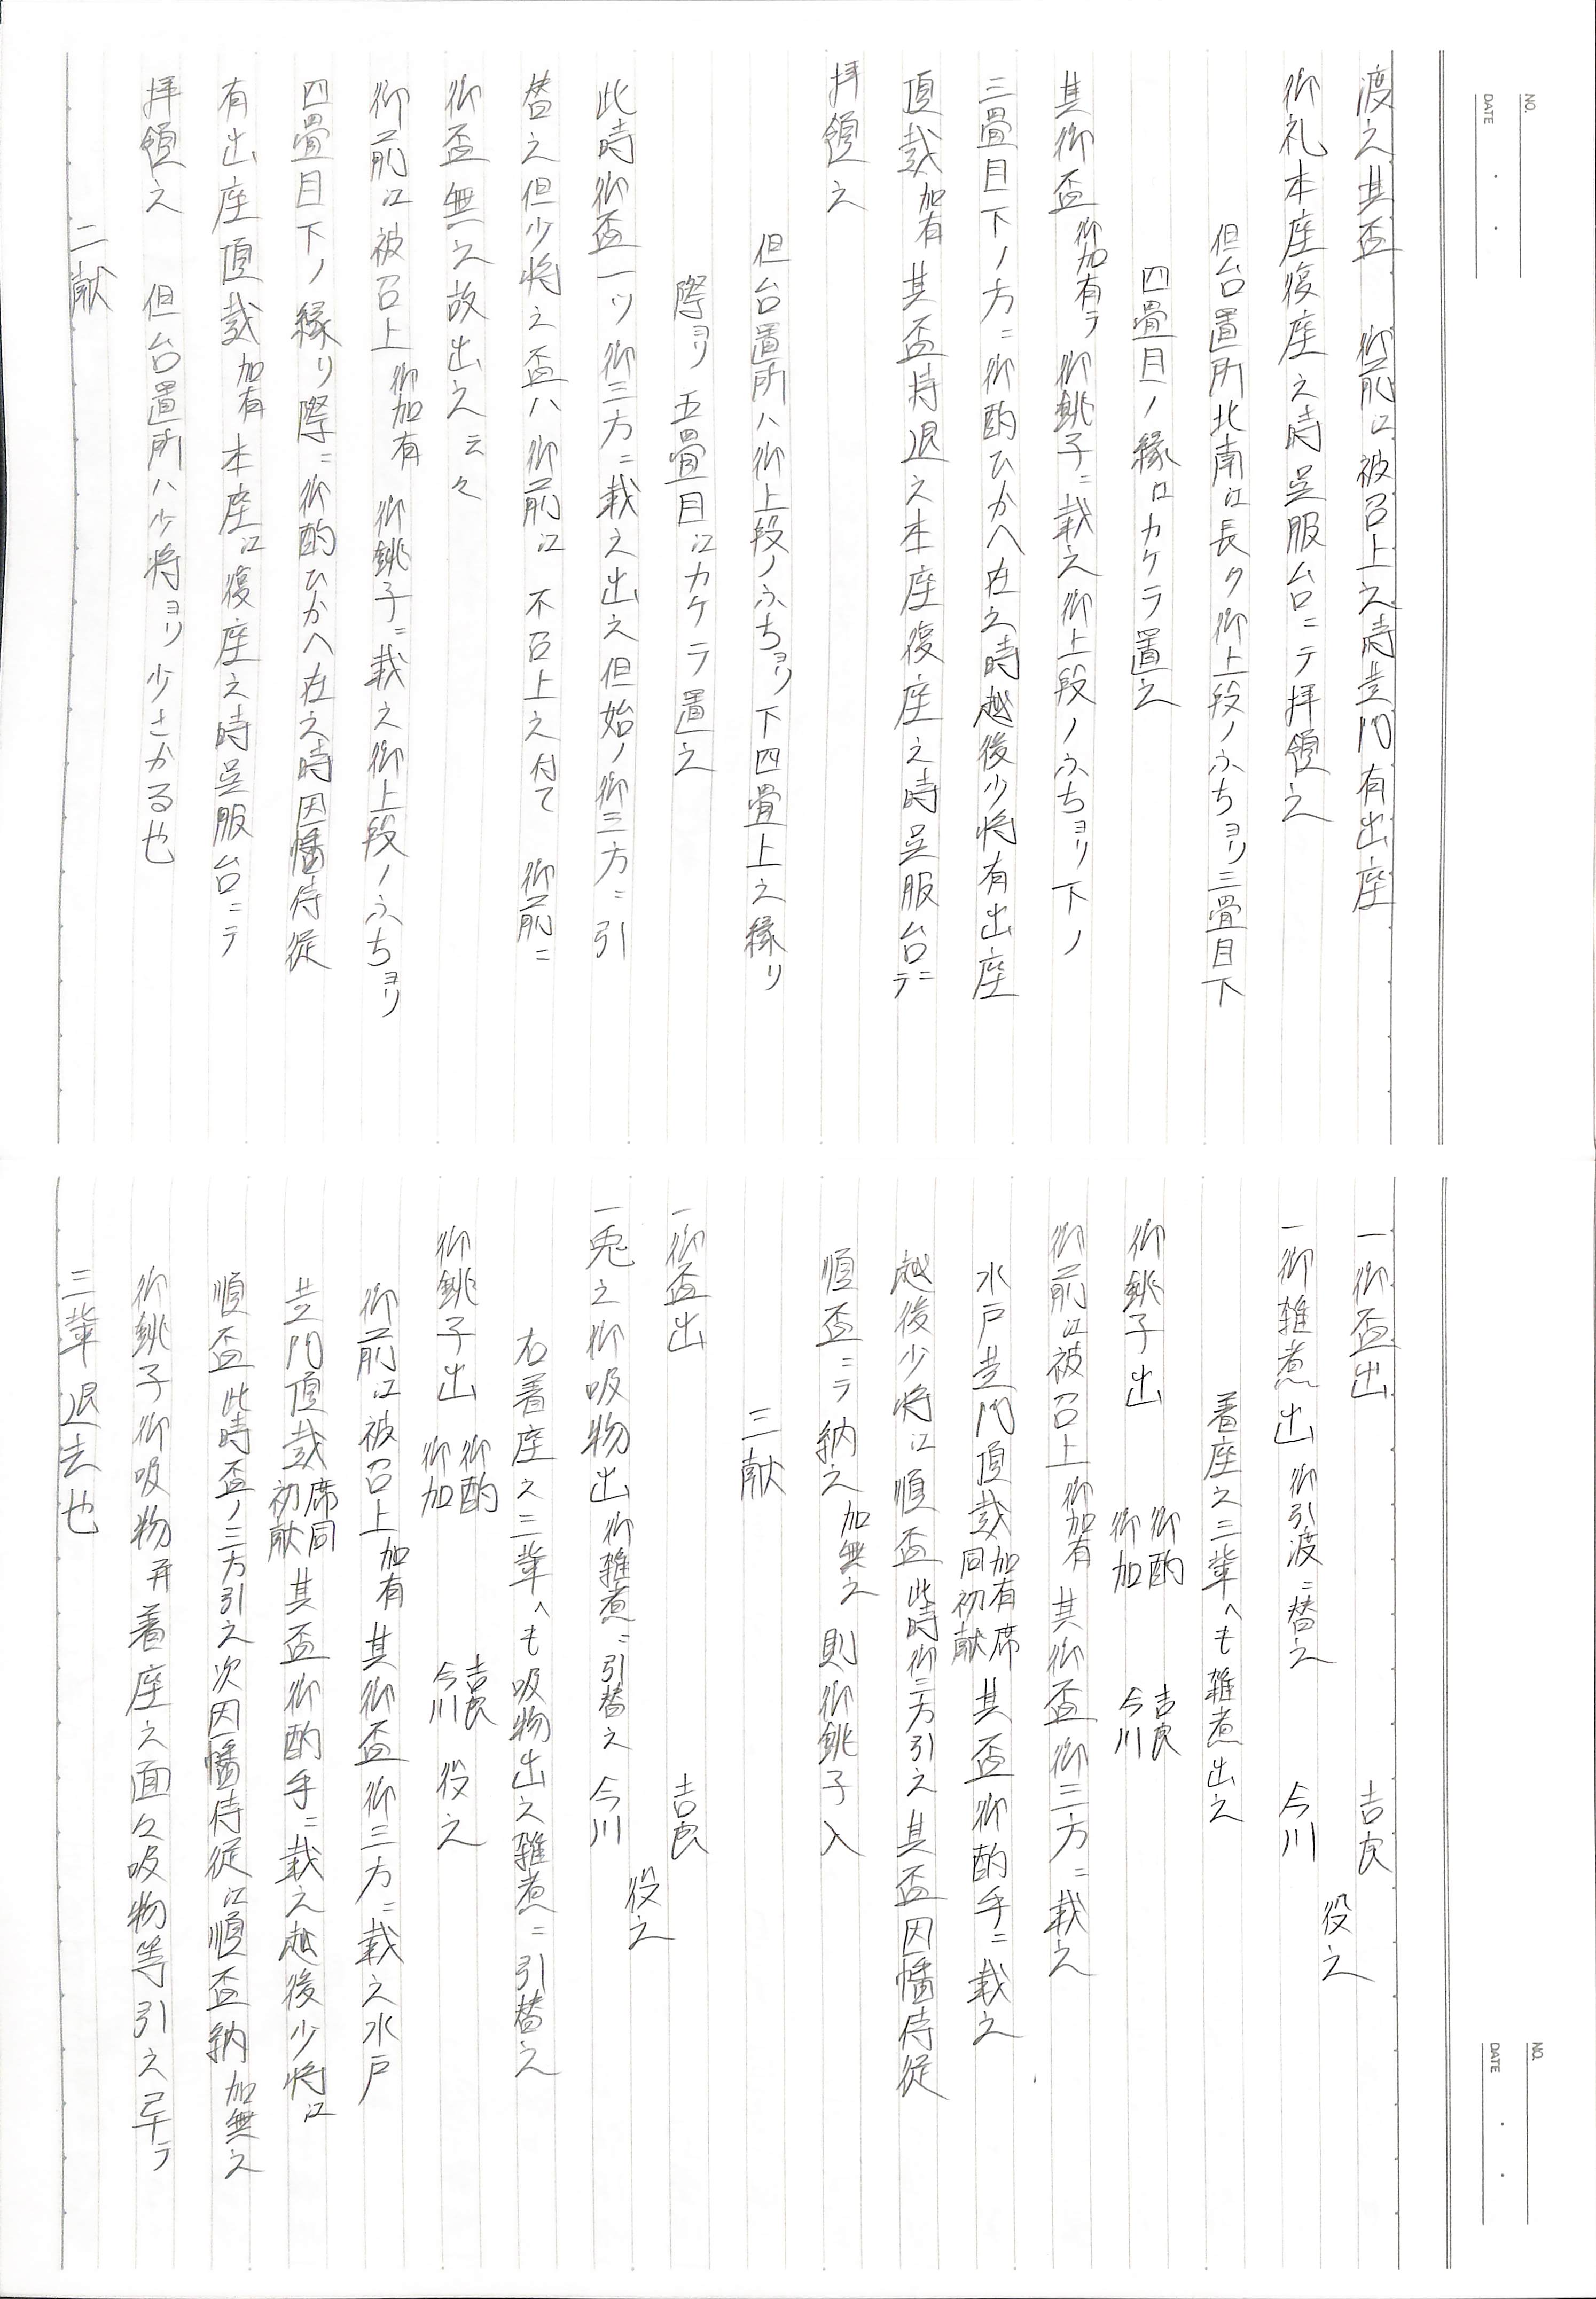 NO.
DATE
渡之其盃　御前江被召上之時黄門有出座
御礼本座復座之時呉服台ニテ拝領之
但台置所北南江長ク御上段ノふちヨリ三畳目下
四畳目ノ縁江カケテ置之
其御盃御加有テ御銚子ニ載之御上段ノふちヨリ下ノ
三畳目下ノ方ニ御酌ひかへ在之時越後少将有出座
頂戴加有其盃持退之本座復座之時呉服台ニテ
拝領之
但台置所ハ御上段ノふちヨリ下四畳上之縁リ
際ヨリ五畳目江カケテ置之
此時御盃一ツ御三方ニ載之出之但始ノ御三方ニ引
替之但少将之盃ハ御前江不召上之付て　御前ニ
御盃無之故出之云々
御前江被召上御加有　御銚子ニ載之御上段ノふちヨリ
四畳目下ノ縁リ際ニ御酌ひかへ在之時因幡侍従
有出座頂戴加有本座江復座之時呉服台ニテ
拝領之　但台置所ハ少将ヨリ少さかる也
二献
NO.
DATE
一御盃出　吉良
一御雑煮出御引渡ニ替之　今川
役之
着座之三輩へも雑煮出之
御銚子出　御酌　御加　吉良　今川
御前江被召上御加有其御盃御三方ニ載之
水戸黄門頂戴加有席同初献其盃御酌手ニ載之
越後少将江順盃此時御三方引之其盃因幡侍従
順盃ニテ納之加無之　則御銚子入
三献
一御盃出　吉良
一兎之御吸物出御雑煮ニ引替之　今川
役之
右着座之三輩へも吸物出之雑煮ニ引替之
御銚子出　御酌　御加　吉良　今川　役之
御前江被召上加有其御盃御三方ニ載之水戸
黄門頂戴席同初献其盃御酌手ニ載之越後少将江
順盃此時盃ノ三方引之次因幡侍従江順盃納加無之
御銚子御吸物并着座之面々吸物等引之畢テ
三輩退去也